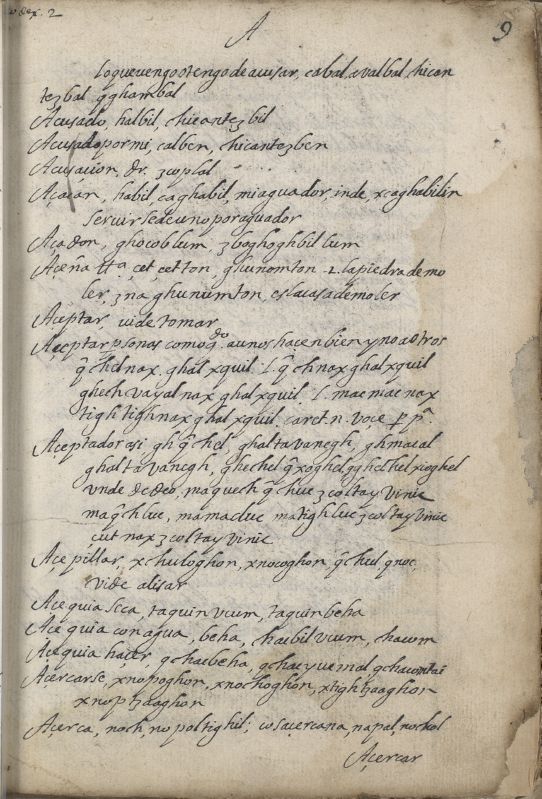 A
9
lo que vengo o tengo de auisar, cabal, avalbal, chican
tezbal
Acusado, halbil, chicantezbil
Acusado por mi, calben, chicantezben
Acusacion, dr. zcoplal
Açacan, habil, caghabil, mi aguador, inde, xcaghabilin
seruirse de uno por aguador
Açadon, ghocoblum, zboghoghbillum
Açeña, cet, cetton, ghunomton. 2. la piedra de mo
ler, zna ghunumton, es la casa de moler
Aceptar, uide tomar
Aceptar psonas como qdo. a unos haçen bien y no a otros
q̃ chel nax, ghal xquil. l. q̃ch nax ghal xquil
ghech vayal nax ghal xquil. l. mac mac nax
tigh tigh nax ghal xquil. caret n. voce p pa.
Aceptador asi gh q̃ chel, ghaltavanegh, ghmacal
ghaltavanegh, ghechel
vnde de deo, maquech q̃ chuc zcoltay vinic
ma q̃chluc, mamacluc matighluc zcoltay vinic
cut nax zcoltay vinic
Acepillar, xchuloghon, xnocoghon, q̃ chul, qnoc,
vide alisar
Acequia seca, taquin vcum, taquin beha
Acequia con agua, beha, haebil vcum, chacom
Acequia haçer, qchacbeha,
Acercarse, xnopoghon, xnochoghon, xtightzaaghon
xnoptzaaghon
Açerca, noch, nopol tighil; cosa cercana, napal, nochol
Açercar